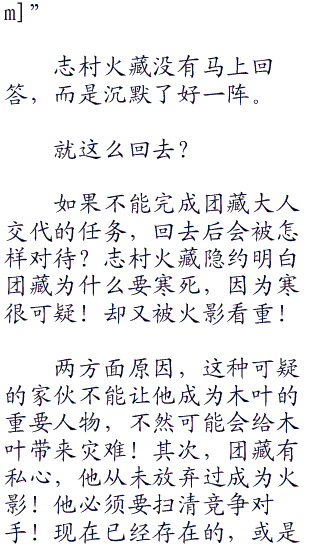 m]”
志村火藏没有马上回
答，而是沉默了好一阵。
就这么回去？
如果不能完成团藏大人
交代的任务，回去后会被怎
样对待？志村火藏隐约明白
团藏为什么要寒死，因为寒
很可疑！却又被火影看重！
两方面原因，这种可疑
的家伙不能让他成为木叶的
重要人物，不然可能会给木
叶带来灾难！其次，团藏有
私心，他从未放弃过成为火
影！他必须要扫清竞争对
手！现在已经存在的，或是